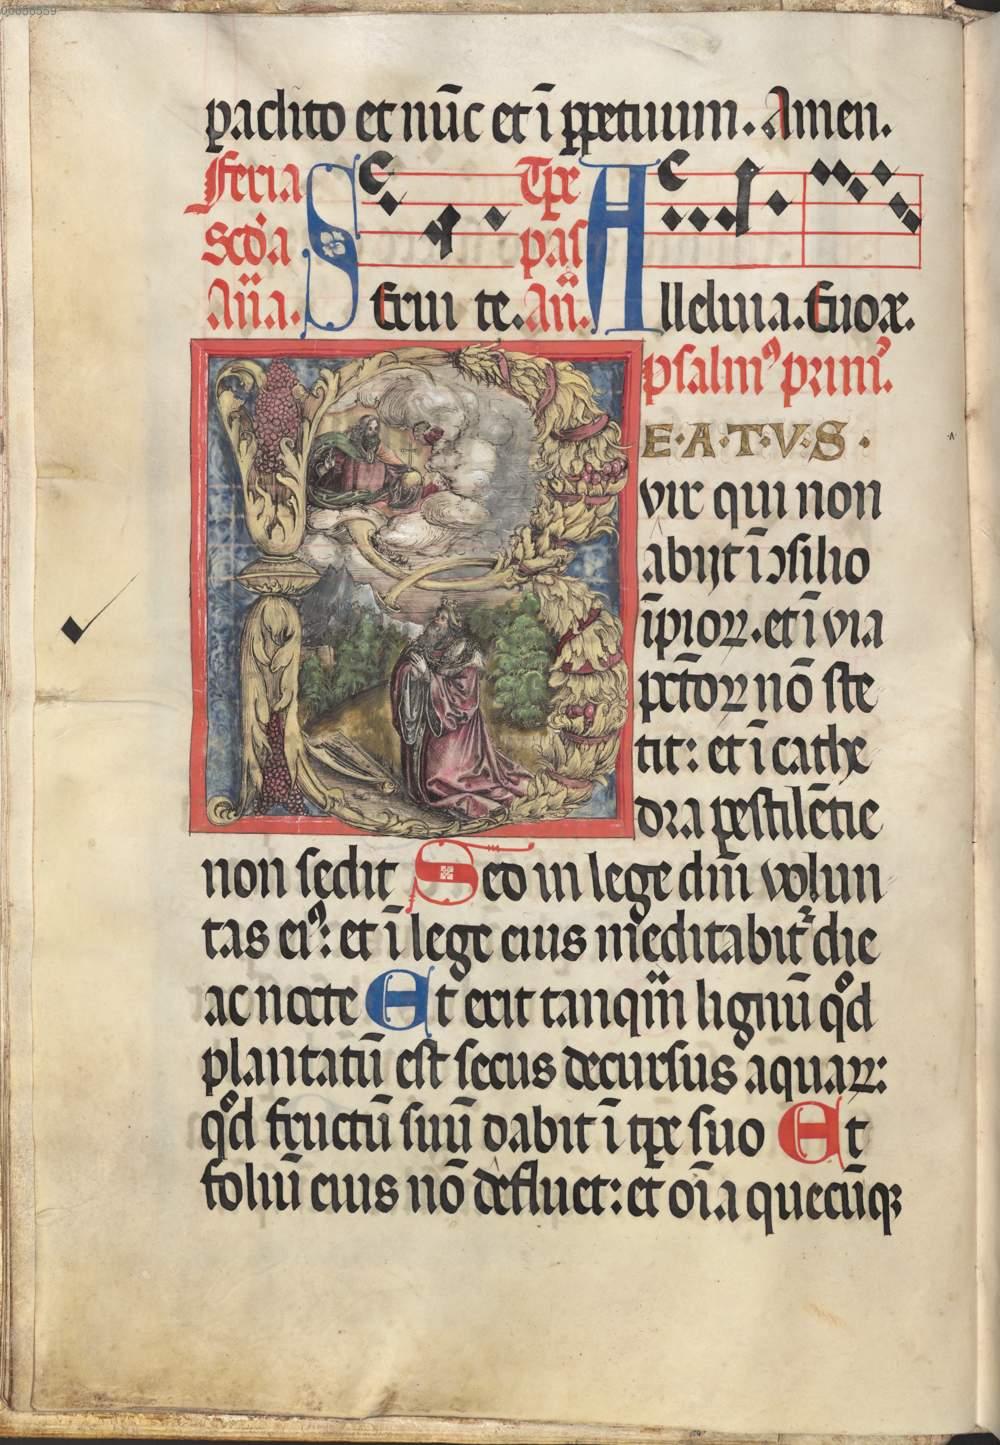 00050559
paclito et nūc et ī ꝑpetuum. Amen.
Feria S Tꝑe A
Scd̓a pas
Añа. Erui te. Añ. lleluia. Euoæ.
psalmꝰ primꝰ.
B E·A·T·V·S·
vir qui non
abijt ī ↄsilio
īpioꝝ. et ī via
pctōꝝ nō ste
tit: et ī cathe
dra pestilētie
non sedit Sed in lege dn̄i volun
tas eiꝰ: et ī lege eius meditabit᷑ die
ac nocte Et erit tanqm̄ lignū qͦd
plantatū est secus decursus aquaꝝ:
qͦd fructū suū dabit ī tꝑe suo Et
foliū eius nō defluet: et oīa quecūqꝫ